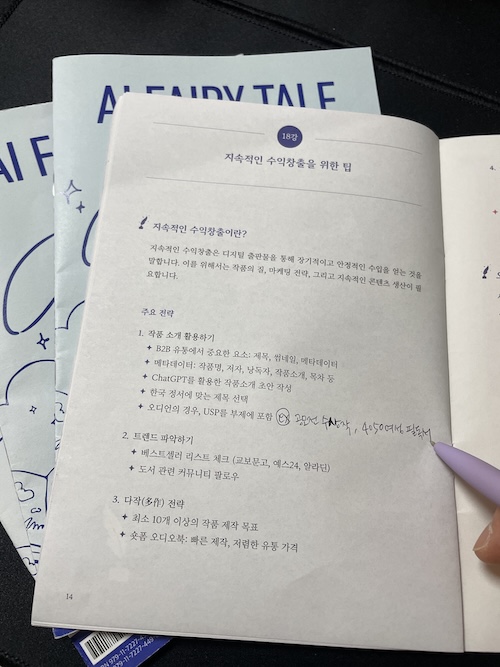 AI FAIRY TALE
AI F
18강
지속적인 수익창출을 위한 팁
지속적인 수익창출이란?
지속적인 수익창출은 디지털 출판물을 통해 장기적이고 안정적인 수입을 얻는 것을
말합니다. 이를 위해서는 작품의 질, 마케팅 전략, 그리고 지속적인 콘텐츠 생산이 필
요합니다.
주요 전략
1. 작품 소개 활용하기
✦ B2B 유통에서 중요한 요소: 제목, 썸네일, 메타데이터
✦ 메타데이터: 작품명, 저자, 낭독자, 작품소개, 목차 등
✦ ChatGPT를 활용한 작품소개 초안 작성
✦ 한국 정서에 맞는 제목 선택
✦ 오디언의 경우, USP를 부제에 포함 ex 공모전 수상작, 4050여성 필독서
2. 트렌드 파악하기
✦ 베스트셀러 리스트 체크 (교보문고, 예스24, 알라딘)
✦ 도서 관련 커뮤니티 팔로우
3. 다작(多作) 전략
✦ 최소 10개 이상의 작품 제작 목표
✦ 숏폼 오디오북: 빠른 제작, 저렴한 유통 가격
14
4.